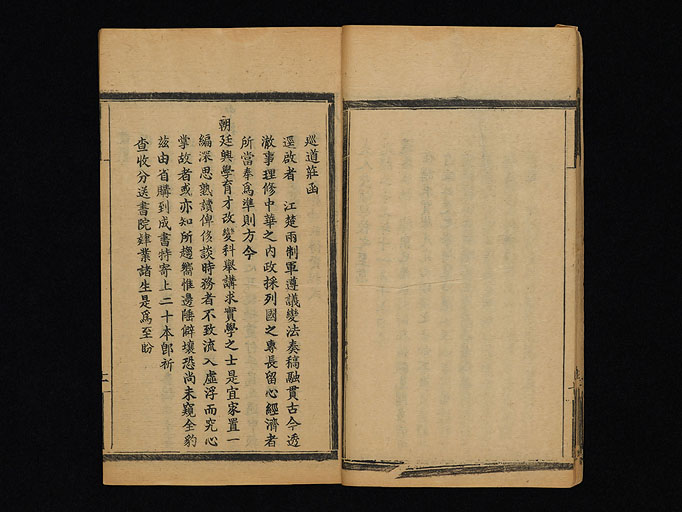 巡道莊函
逕啟者　江楚兩制軍遵議變法奏稿融貫古今透
澈事理修中華之內政採列國之專長留心經濟者
所當奉為準則方今
朝廷興學育才改變科舉講求實學之士是宜家置一
編深思熟讀俾侈談時務者不致流入虛浮而究心
掌故者或亦知所趨嚮惟邊陲僻壤恐尚未窺全豹
茲由省購到成書特寄上二十本卽祈
查收分送書院肄業諸生是為至盼